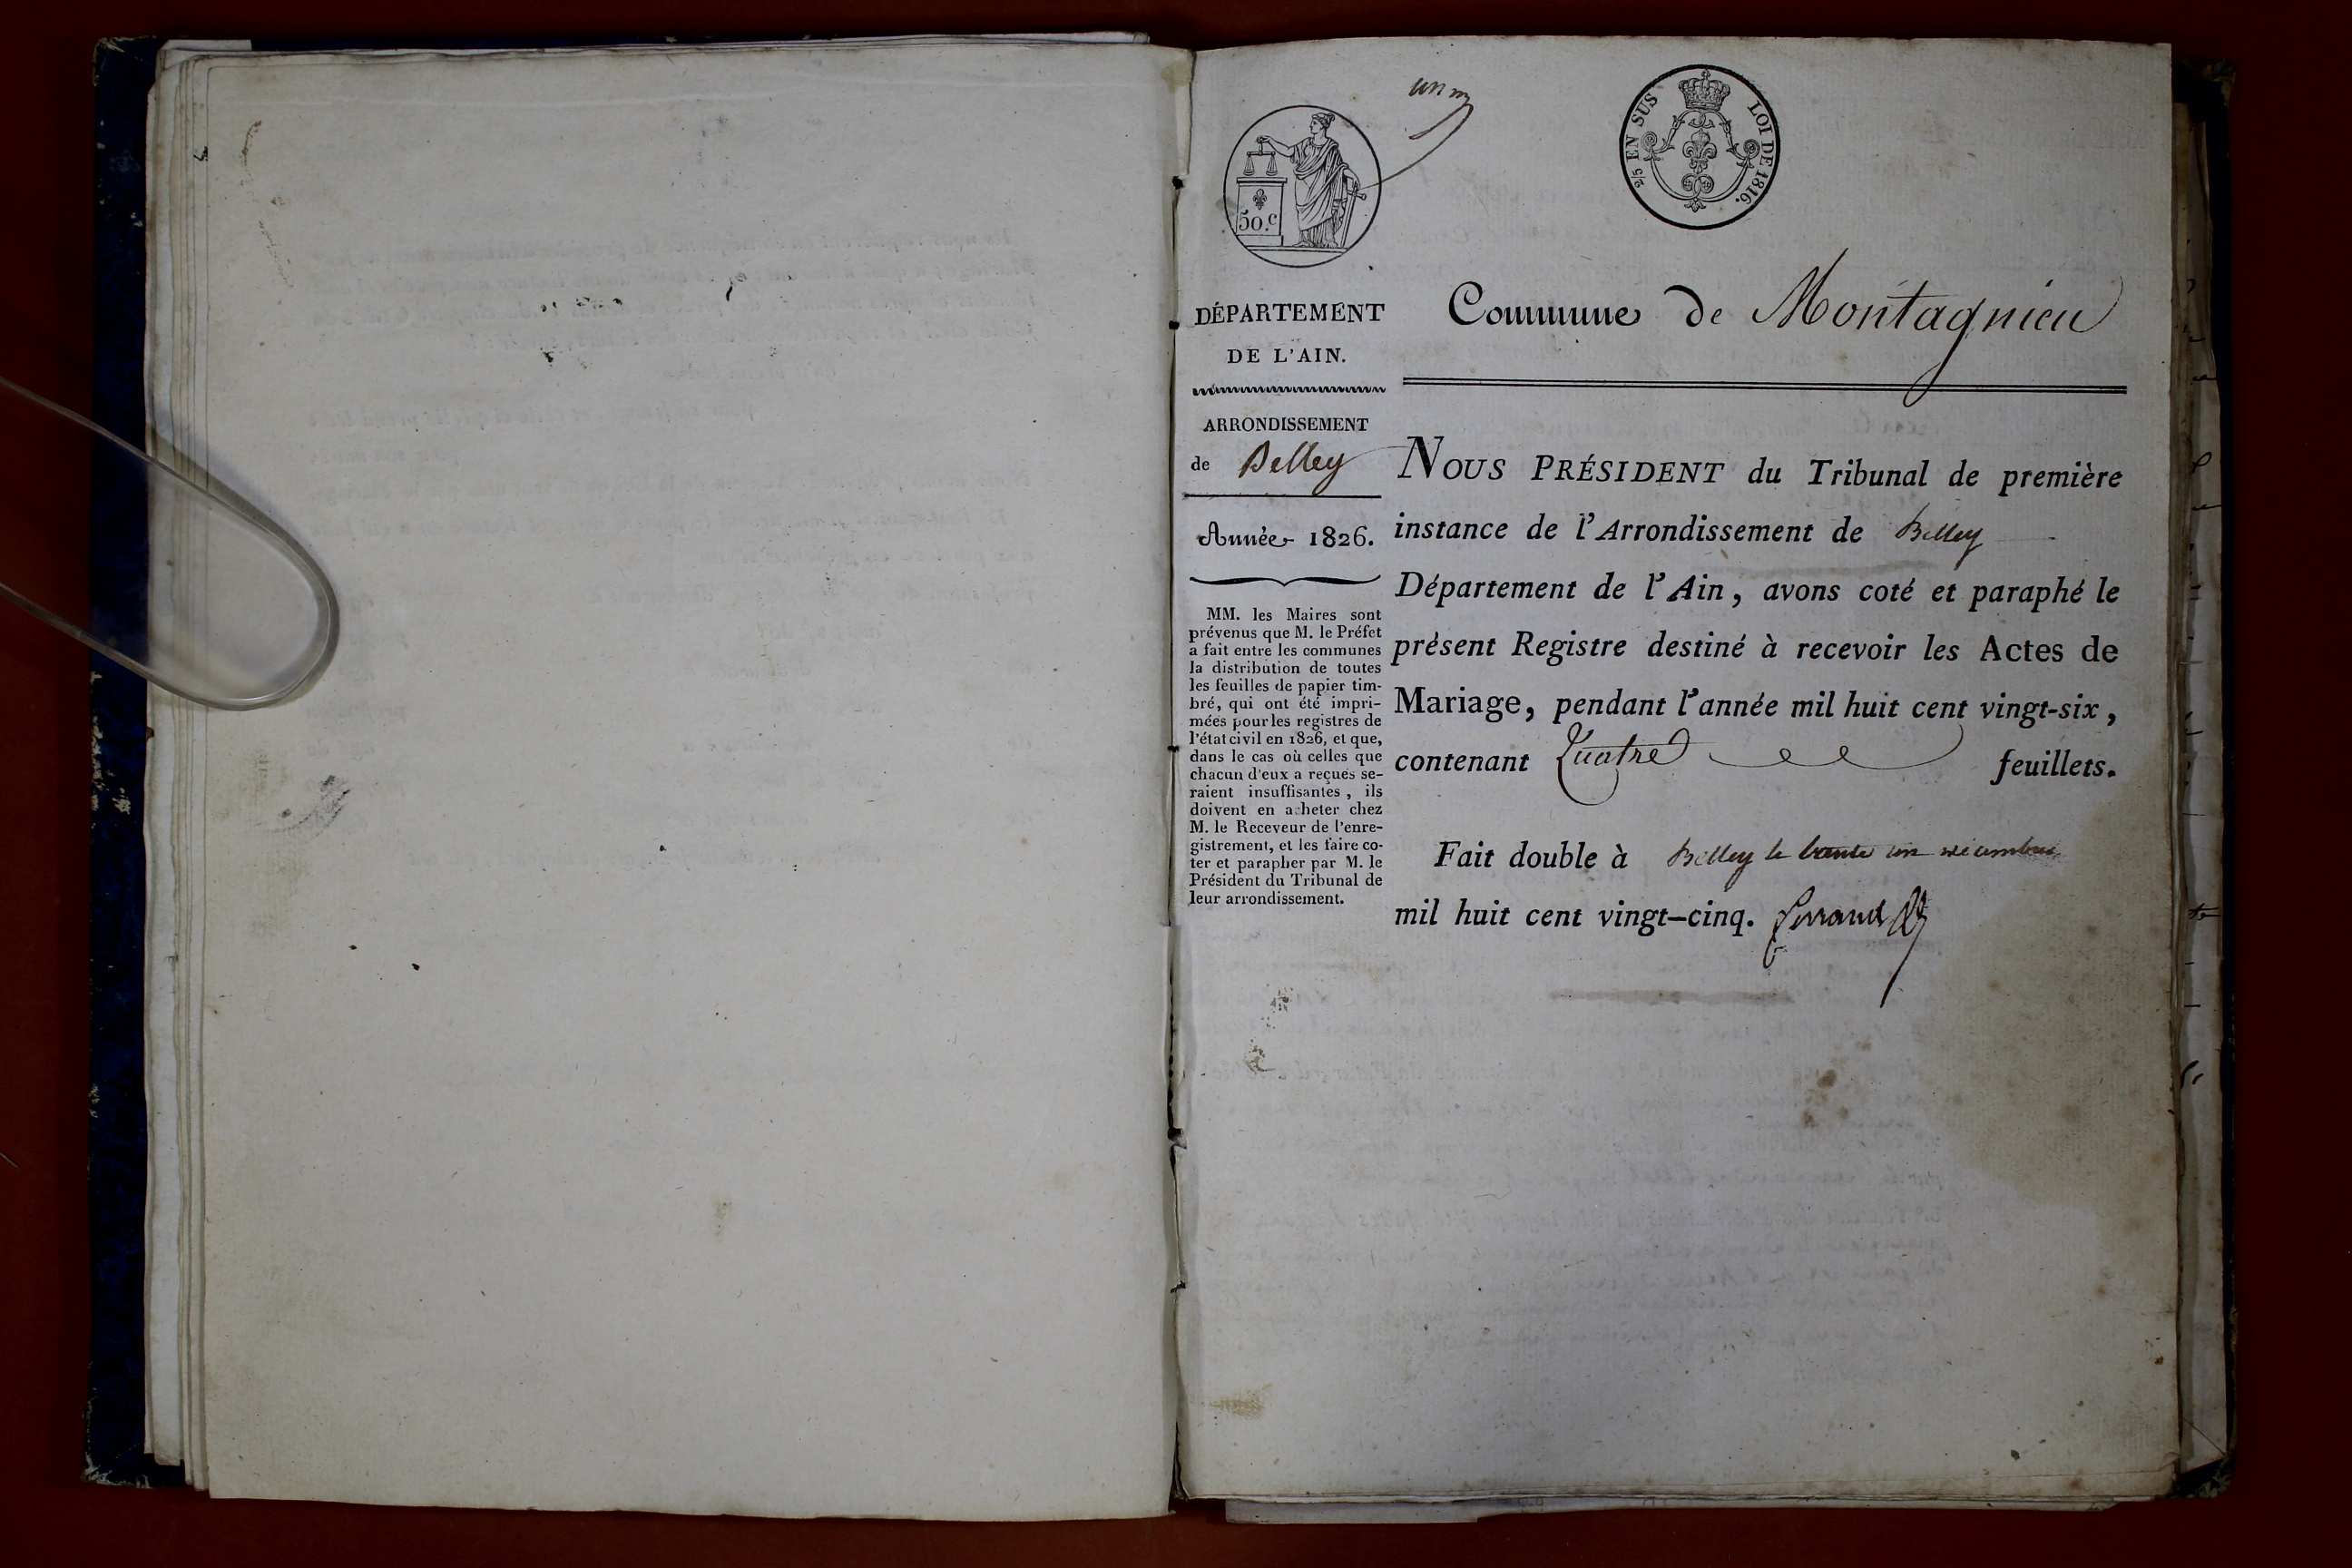 un
50.c
2/5 EN SUS LOI DE 1816.
DÉPARTEMENT
DE L'AIN.
ARRONDISSEMENT
de Belley
Année 1826.
MM. les Maires sont
prévenus que M. le Préfet
a fait entre les communes
la distribution de toutes
les feuilles de papier tim-
bré, qui ont été impri-
mées pour les registres de
l'état civil en 1826, et que,
dans le cas où celles que
chacun d'eux a reçues se-
raient insuffisantes, ils
doivent en acheter chez
M. le Receveur de l'enre-
gistrement, et les faire co-
ter et parapher par M. le
Président du Tribunal de
leur arrondissement.
Commune de Montagnieu
NOUS PRÉSIDENT du Tribunal de première
instance de l'Arrondissement de Belley
Département de l'Ain, avons coté et paraphé le
présent Registre destiné à recevoir les Actes de
Mariage, pendant l'année mil huit cent vingt-six,
contenant Quatre feuillets.
Fait double à Belley le trente un décembre
mil huit cent vingt-cinq. Ferrand